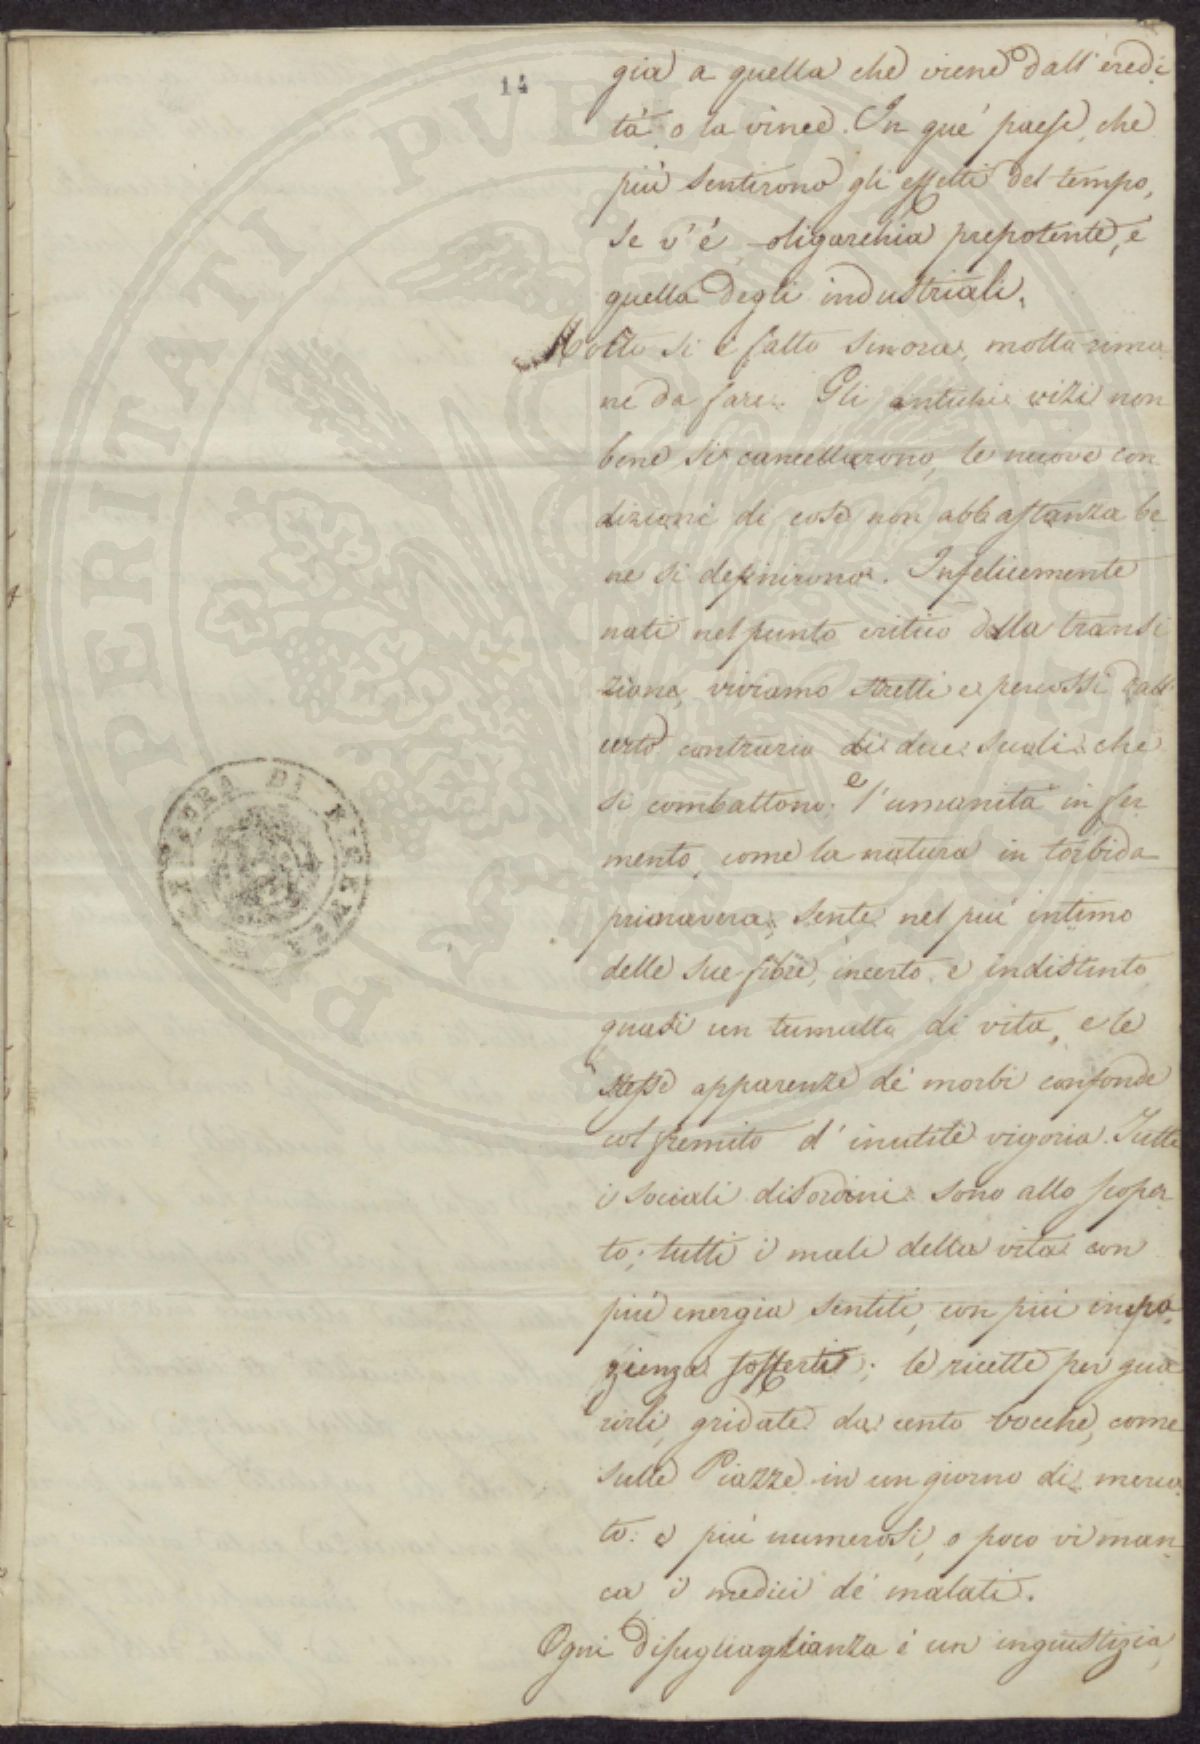 14
già a quella che viene dall' eredi
tà o la vince. In que' paesi, che
più sentirono gli effetti del tempo,
se v' é oligarchia prepotente, é
quella degli industriali.
Molto si é fatto sinora, molto rima
ne da fare. Gli antichi vizi non
bene si cancellarono, le nuove con
dizioni di cose non abbastanza be
ne si definirono. Infelicemente
nati nel punto critico della transi
zione, viviamo stretti e percossi dall'
urto contrario di due secoli che
si combattono; e l' umanità in fer
mento, come la natura in torbida
primavera, sente nel più intimo
delle sue fibre, incerto e indistinto
quasi un tumulto di vita, e le
stesse apparenze de' morbi confonde
col fremito d' inutile vigoria. Tutti
i sociali disordini sono allo scoper
to; tutti i mali della vita con
più energia sentiti, con più impa
zienza sofferti; le ricette per gua
rirli, gridate da cento bocche, come
sulle Piazze in un giorno di merca
to: e più numerosi, o poco vi man
ca i medici de' malati.
Ogni disugliaglianza é un ingiustizia,
PERITATI PVBLICAE